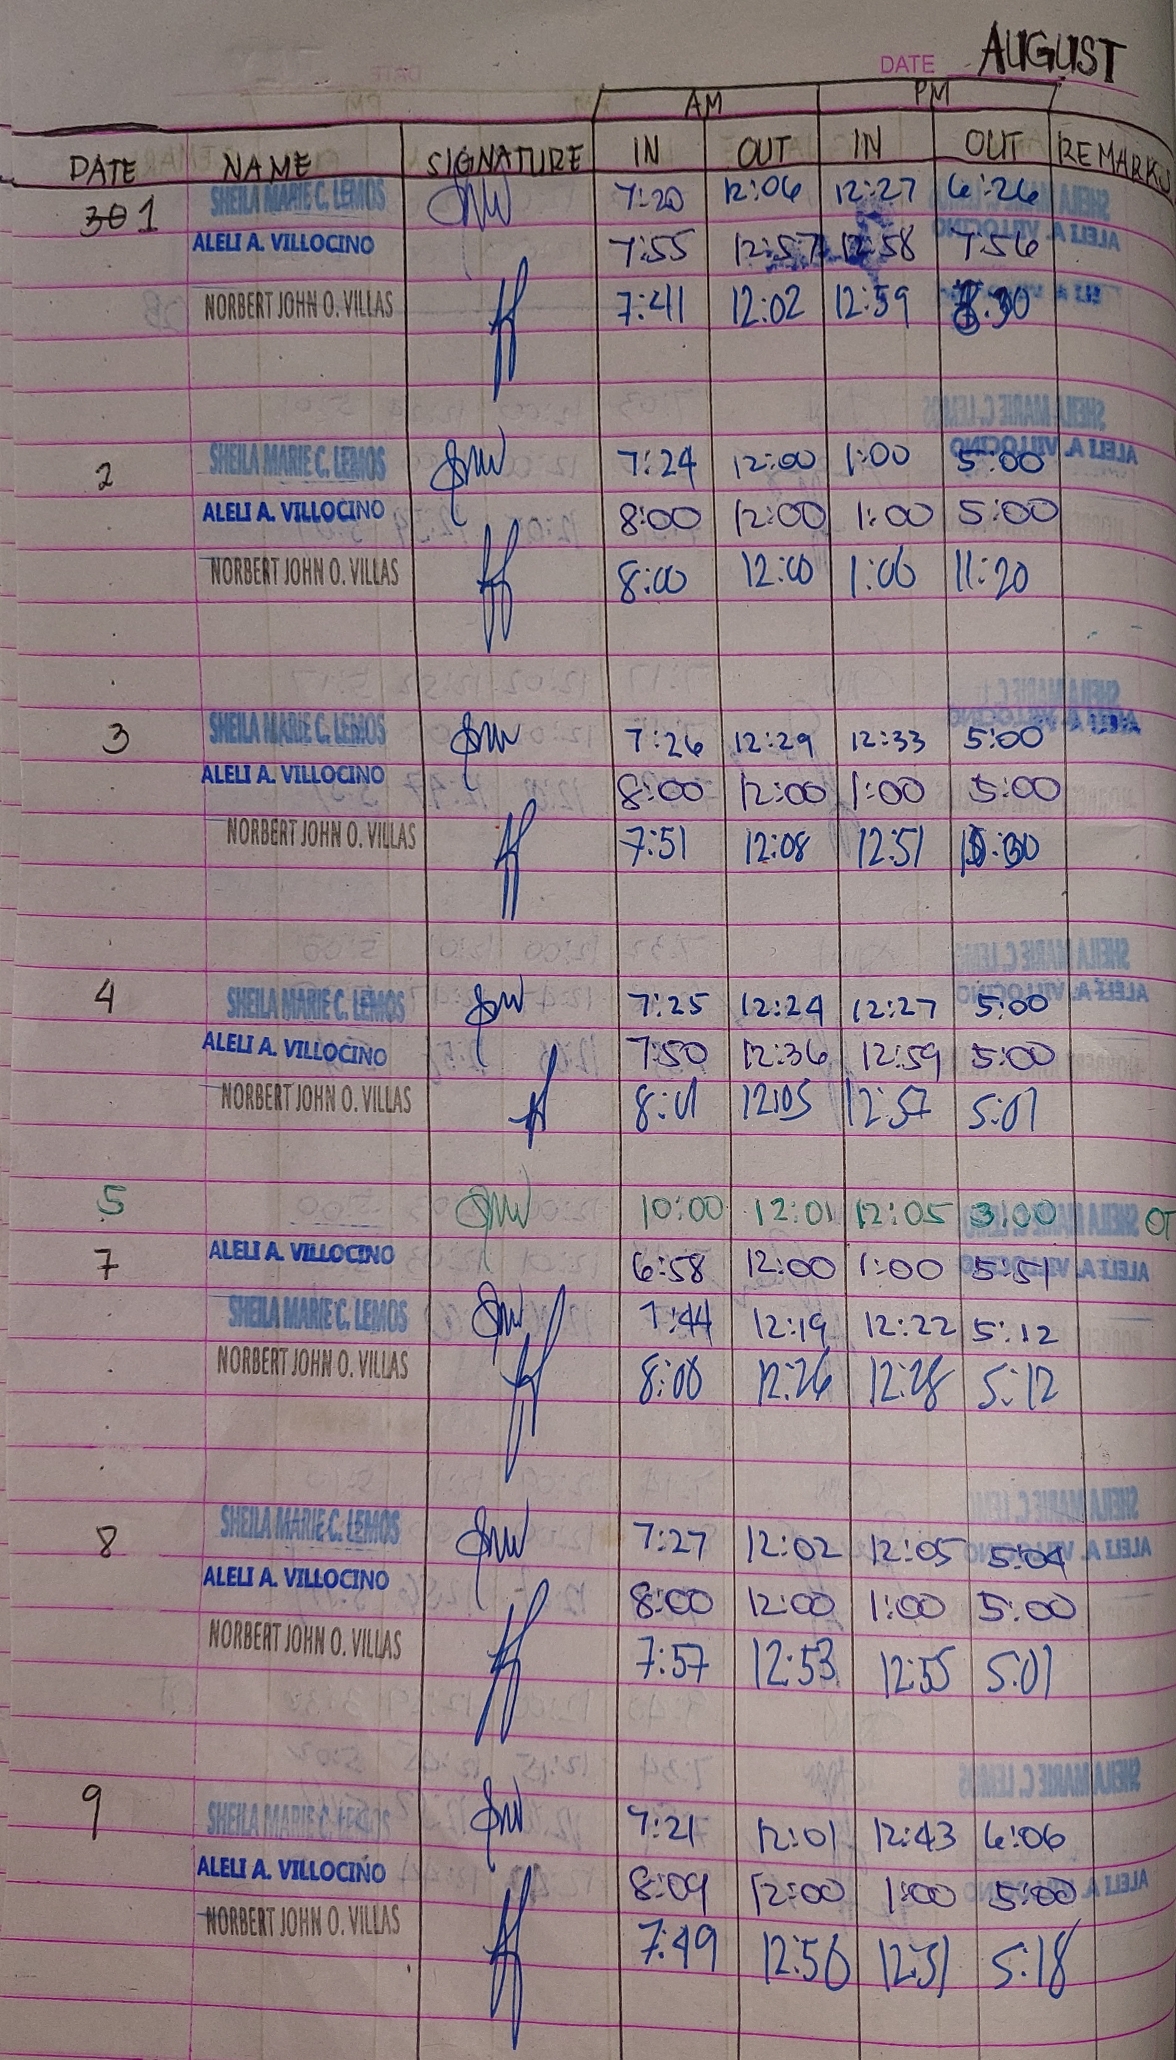 DATE AUGUST
AM PM
DATE NAME SIGNATURE IN OUT IN OUT REMARKS
1 SHEILA MARIE C. LEMOS 7:20 12:06 12:27 6:26
ALELI A. VILLOCINO 7:55 12:57 12:58 7:56
NORBERT JOHN O. VILLAS 7:41 12:02 12:59
2 SHEILA MARIE C. LEMOS 7:24 12:00 1:00 5:00
ALELI A. VILLOCINO 8:00 12:00 1:00 5:00
NORBERT JOHN O. VILLAS 8:00 12:00 1:00 11:20
3 SHEILA MARIE C. LEMOS 7:26 12:29 12:33 5:00
ALELI A. VILLOCINO 8:00 12:00 1:00 5:00
NORBERT JOHN O. VILLAS 7:51 12:08 12:51
4 SHEILA MARIE C. LEMOS 7:25 12:24 12:27 5:00
ALELI A. VILLOCINO 7:50 12:36 12:59 5:00
NORBERT JOHN O. VILLAS 8:01 12:05 12:57 5:01
5 10:00 12:01 12:05 3:00 OT
7 ALELI A. VILLOCINO 6:58 12:00 1:00 5:51
SHEILA MARIE C. LEMOS 7:44 12:19 12:22 5:12
NORBERT JOHN O. VILLAS 8:00 12:26 12:28 5:12
8 SHEILA MARIE C. LEMOS 7:27 12:02 12:05 5:04
ALELI A. VILLOCINO 8:00 12:00 1:00 5:00
NORBERT JOHN O. VILLAS 7:57 12:53 12:55 5:01
9 SHEILA MARIE C. LEMOS 7:21 12:01 12:43 6:06
ALELI A. VILLOCINO 8:09 12:00 1:00 5:00
NORBERT JOHN O. VILLAS 7:49 12:50 12:51 5:18